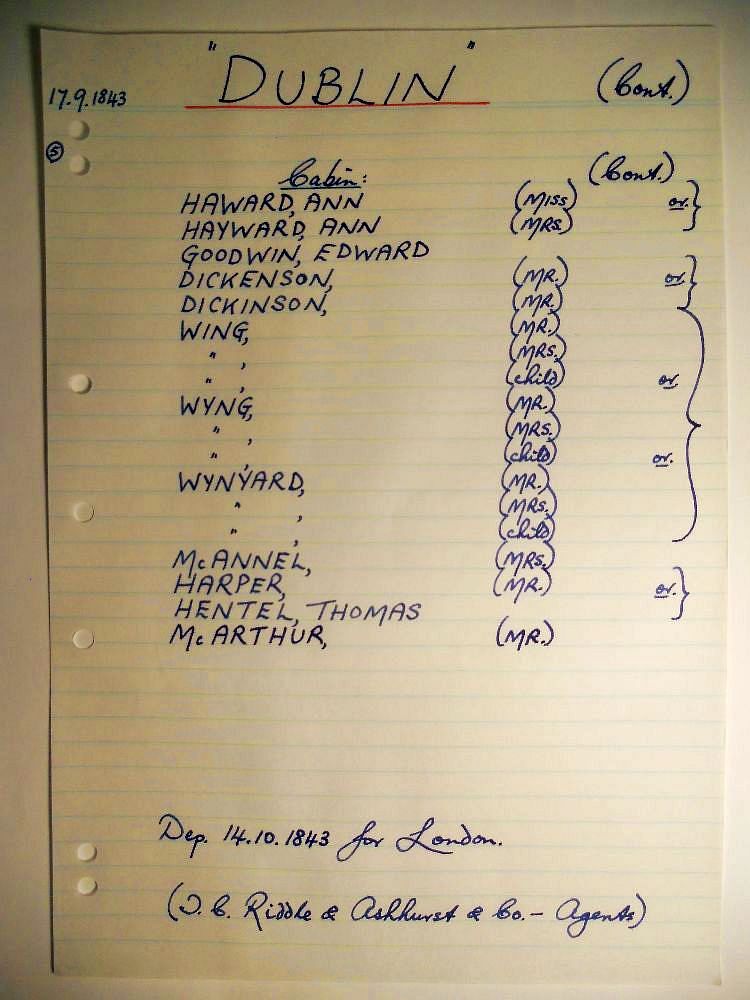 "DUBLIN"
17.9.1843
(Cont.)
5
Cabin:
(Cont.)
HAWARD, ANN (MISS) or.
HAYWARD, ANN (MRS.)
GOODWIN, EDWARD
DICKENSON, (MR.) or.
DICKINSON, (MR.)
WING, (MR.)
" , (MRS.)
" , (child) or.
WYNG, (MR.)
" , (MRS.)
" , (child) or.
WYNYARD, (MR.)
" , (MRS.)
" , (child)
McANNEL, (MRS.)
HARPER, (MR.) or.
HENTEL, THOMAS
McARTHUR, (MR.)
Dep. 14.10.1843 for London.
(J. C. Riddle & Ashhurst & Co. – Agents)